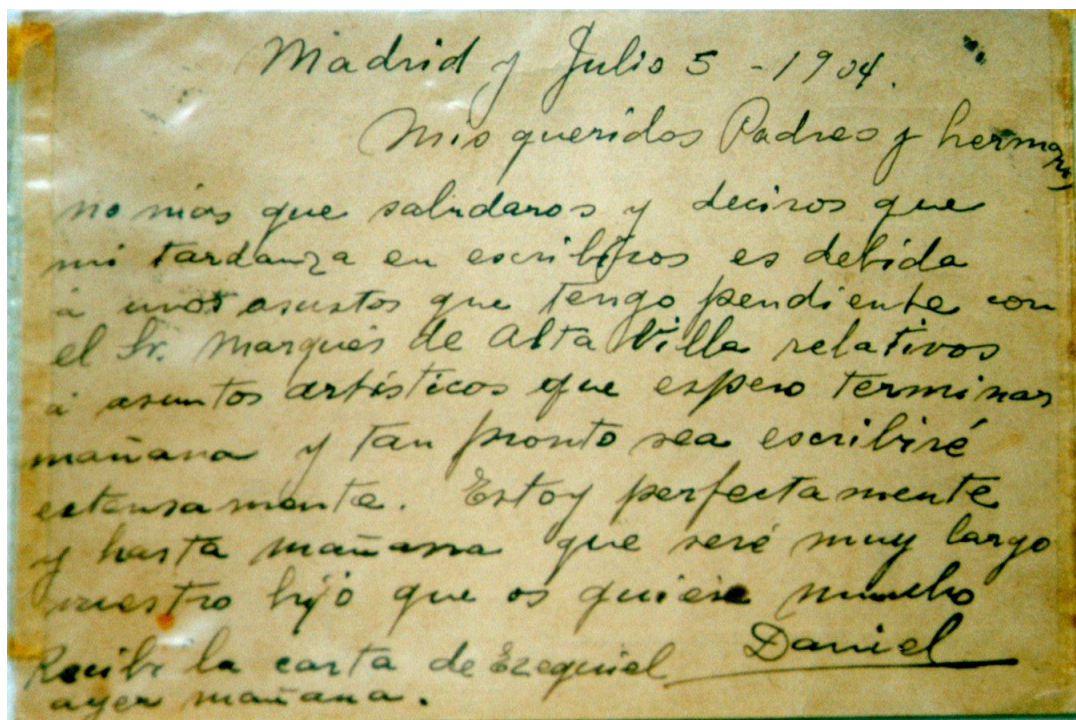 Madrid y Julio 5 - 1904.
Mis queridos Padres y hermanos
no mas que saludaros y deciros que
mi tardanza en escribiros es debida
á unos asuntos que tengo pendiente con
el Sr. Marqués de Alta Villa relativos
á asuntos artísticos que espero terminar
mañana y tan pronto sea escribiré
extensamente. Estoy perfectamente
y hasta mañana que seré muy largo
vuestro hijo que os quiere mucho
Daniel
Recibi la carta de Ezequiel
ayer mañana.